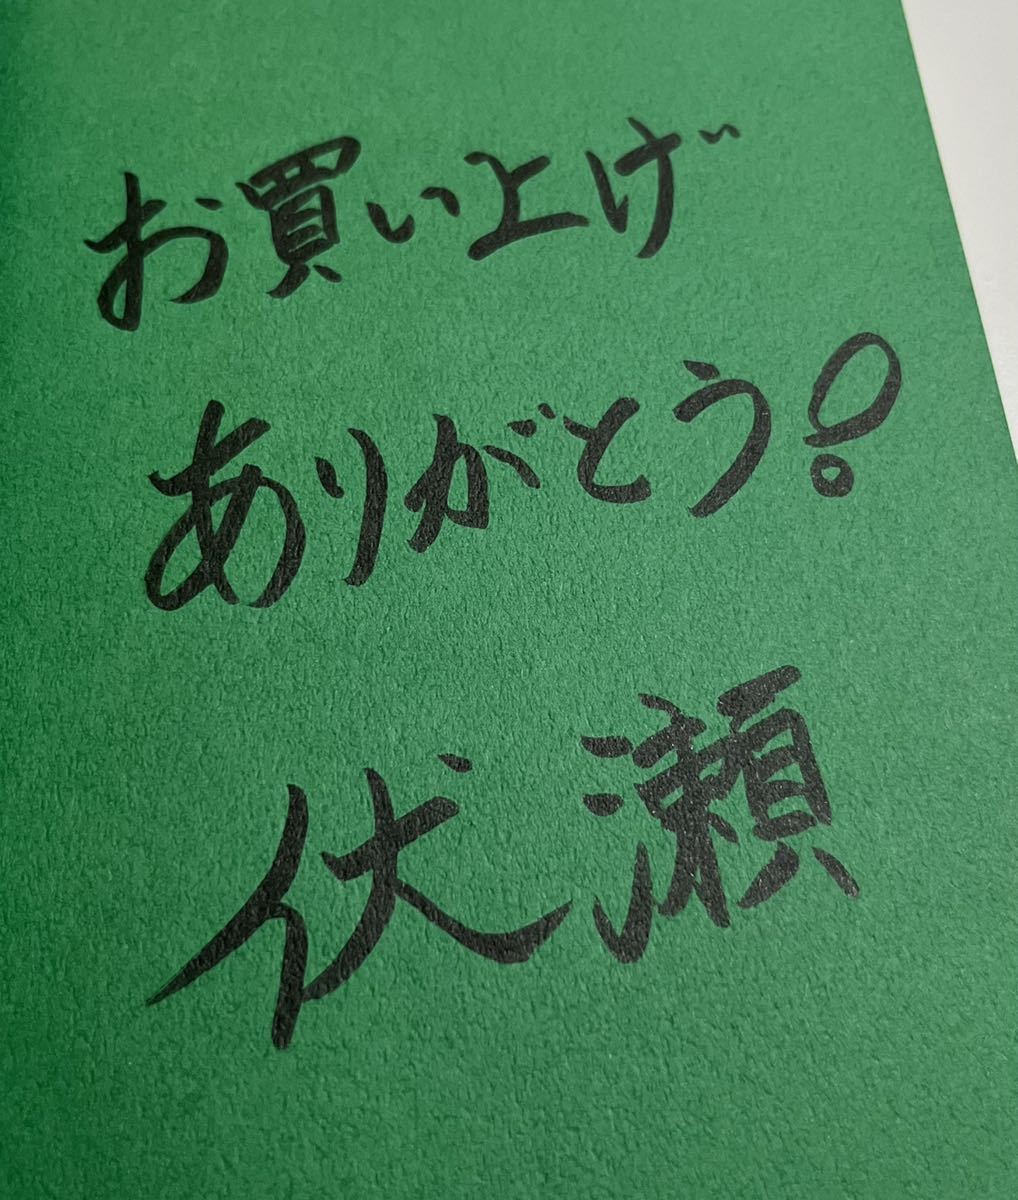 お買い上げ
ありがとう!
伏瀬